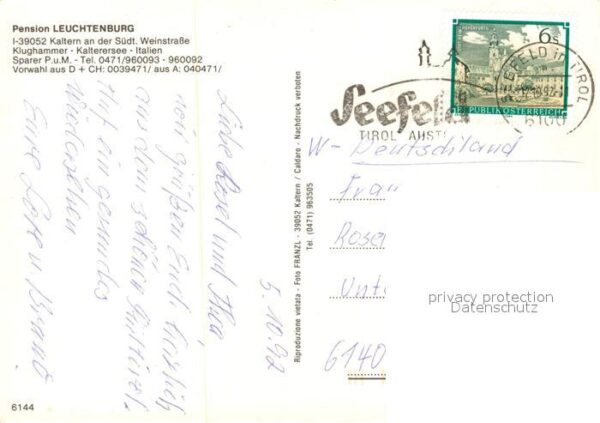 Pension LEUCHTENBURG
I-39052 Kaltern an der Südt. Weinstraße
Klughammer - Kalterersee - Italien
Sparer P.u.M. - Tel. 0471/960093 - 960092
Vorwahl aus D + CH: 0039471/ aus A: 040471/
5.10.92
Liebe Rosel und
wir grüßen Euch herzlich
aus dem schönen Südtirol.
Auf ein gesundes
Wiedersehen
Eure Lore u.
6144
Riproduzione vietata - Foto FRANZL - 39052 Kaltern / Caldaro - Nachdruck verboten
Tel. (0471) 963505
6s
REPUBLIK ÖSTERREICH
Seefeld
TIROL AUST
SEEFELD IN TIROL
6100
W-Deutschland
Frau
Rose
Unt
6140
privacy protection
Datenschutz